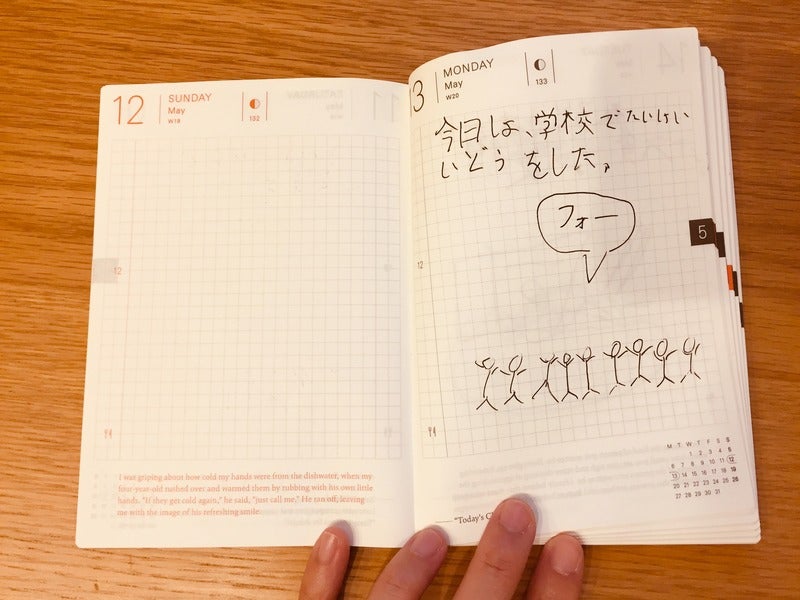 12
SUNDAY
May
W19
132
12
I was griping about how cold my hands were from the dishwater, when my
four-year-old rushed over and warmed them by rubbing with his own little
hands. "If they get cold again," he said, "just call me." He ran off, leaving
me with the image of his refreshing smile.
3
MONDAY
May
W20
133
今日は、学校でたいけい
いどうをした。
フォー
12
5
M T W T F S S
1 2 3 4 5
6 7 8 9 10 11 12
13 14 15 16 17 18 19
20 21 22 23 24 25 26
27 28 29 30 31
"Today's